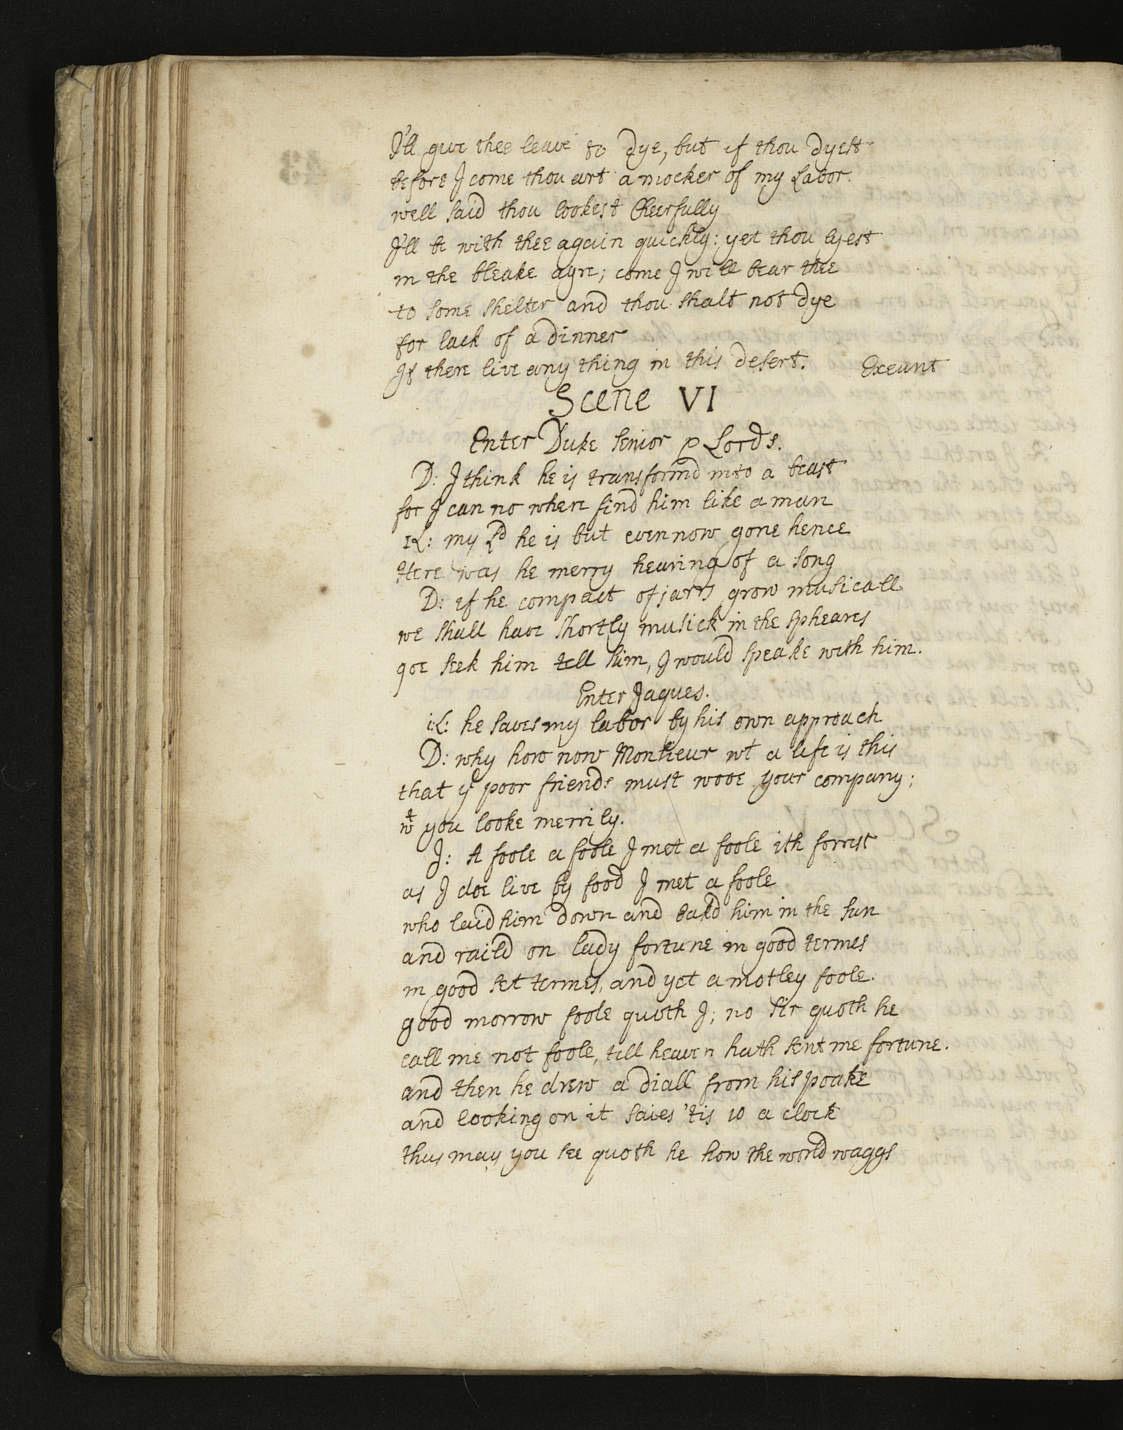 I'll give thee leave to dye, but if thou dyest
before I come thou art a mocker of my Labor.
well said thou lookest Cheerfully
I'll be with thee again quickly: yet thou lyest
in the bleake ayre; come I will bear thee
to some shelter and thou shalt not dye
for lack of a dinner
If there live any thing in this desert. Exeunt
Scene VI
Enter Duke senior & Lords.
D: I think he is transformd into a beast
for I can no where find him like a man
1L: my Ld he is but even now gone hence
Here was he merry hearing of a song
D: if he compact of jarrs grow musicall
we shall have shortly musick in the sphears
goe seek him tell him, I would speake with him.
Enter Jaques.
1L: he saves my labor by his own approach
D: why how now Monsieur wt a life is this
that yr poor friends must wooe your company;
wt you looke merrily.
J: A foole a foole I met a foole ith forrest
as I doe live by food I met a foole
who laid him down and baskd him in the sun
and raild on lady fortune in good termes
in good set termes, and yet a motley foole.
good morrow foole quoth I; no sir quoth he
call me not foole, till heaven hath sent me fortune.
and then he drew a diall from his poake
and looking on it saies 'tis 10 a clock
thus may you see quoth he how the world waggs